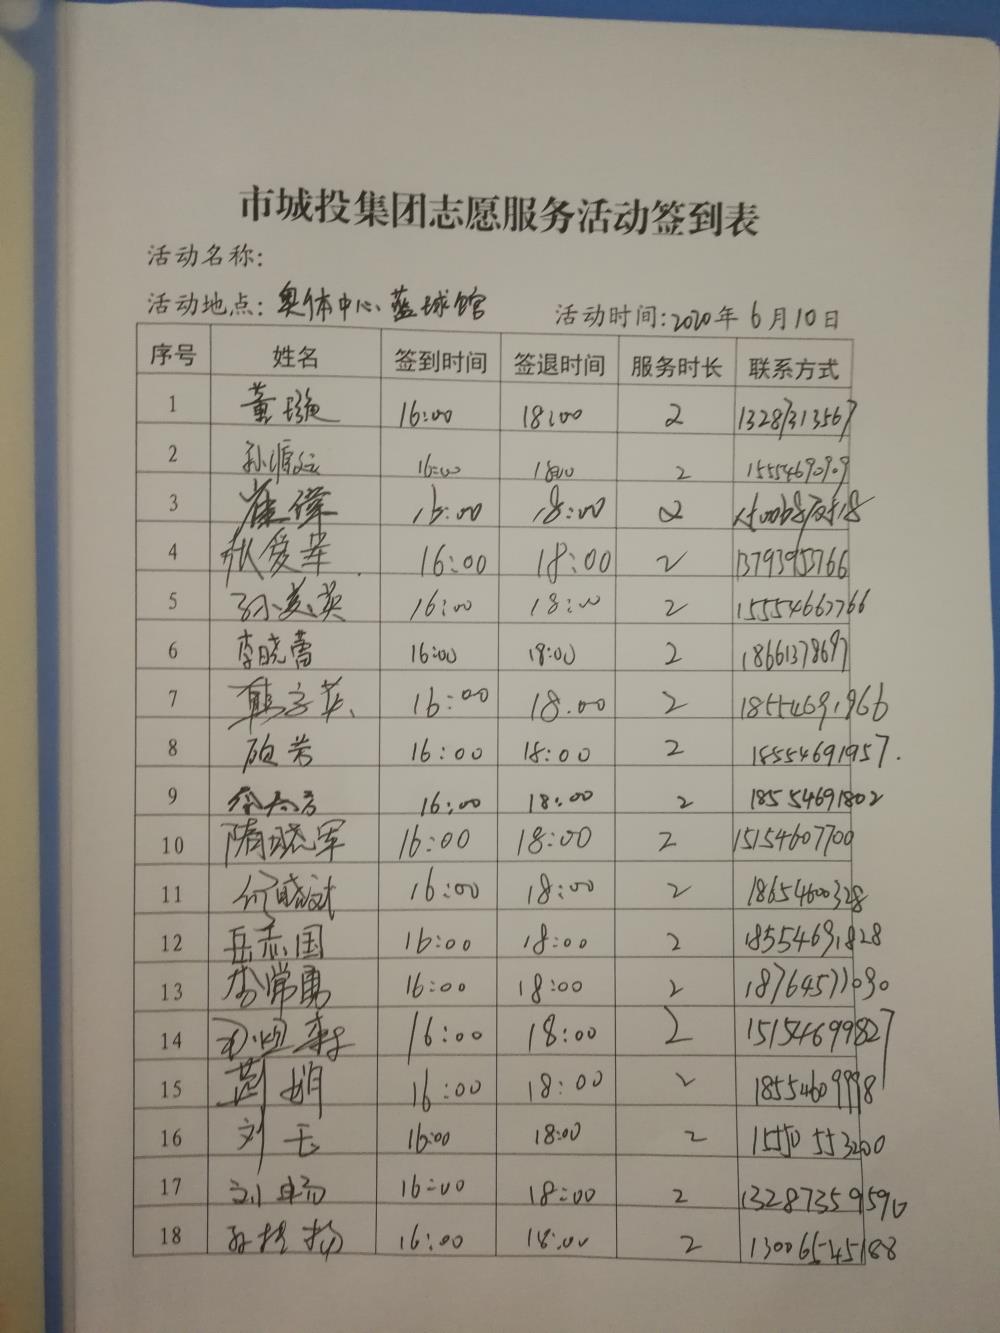 市城投集团志愿服务活动签到表
活动名称:
活动地点: 奥体中心篮球馆 活动时间: 2020年6月10日
序号 姓名 签到时间 签退时间 服务时长 联系方式
1 董璇 16:00 18:00 2 13287313567
2 16:00 18:00 2 15554690909
3 崔伟 16:00 18:00 2
4 张爱军 16:00 18:00 2 13793953766
5 孙美英 16:00 18:00 2 15554667766
6 李晓蕾 16:00 18:00 2 18661378697
7 16:00 18.00 2 18554691966
8 顾芳 16:00 18:00 2 18554691957.
9 16:00 18:00 2 18554691802
10 隋晓军 16:00 18:00 2 15154607700
11 何晓斌 16:00 18:00 2 18654600328
12 岳志国 16:00 18:00 2 18554691828
13 李常勇 16:00 18:00 2 18764577030
14 16:00 18:00 2 15154699827
15 16:00 18:00 2 18554609998
16 刘玉 16:00 18:00 2 15550553200
17 刘畅 16:00 18:00 2 13287359590
18 16:00 18:00 2 13006545188